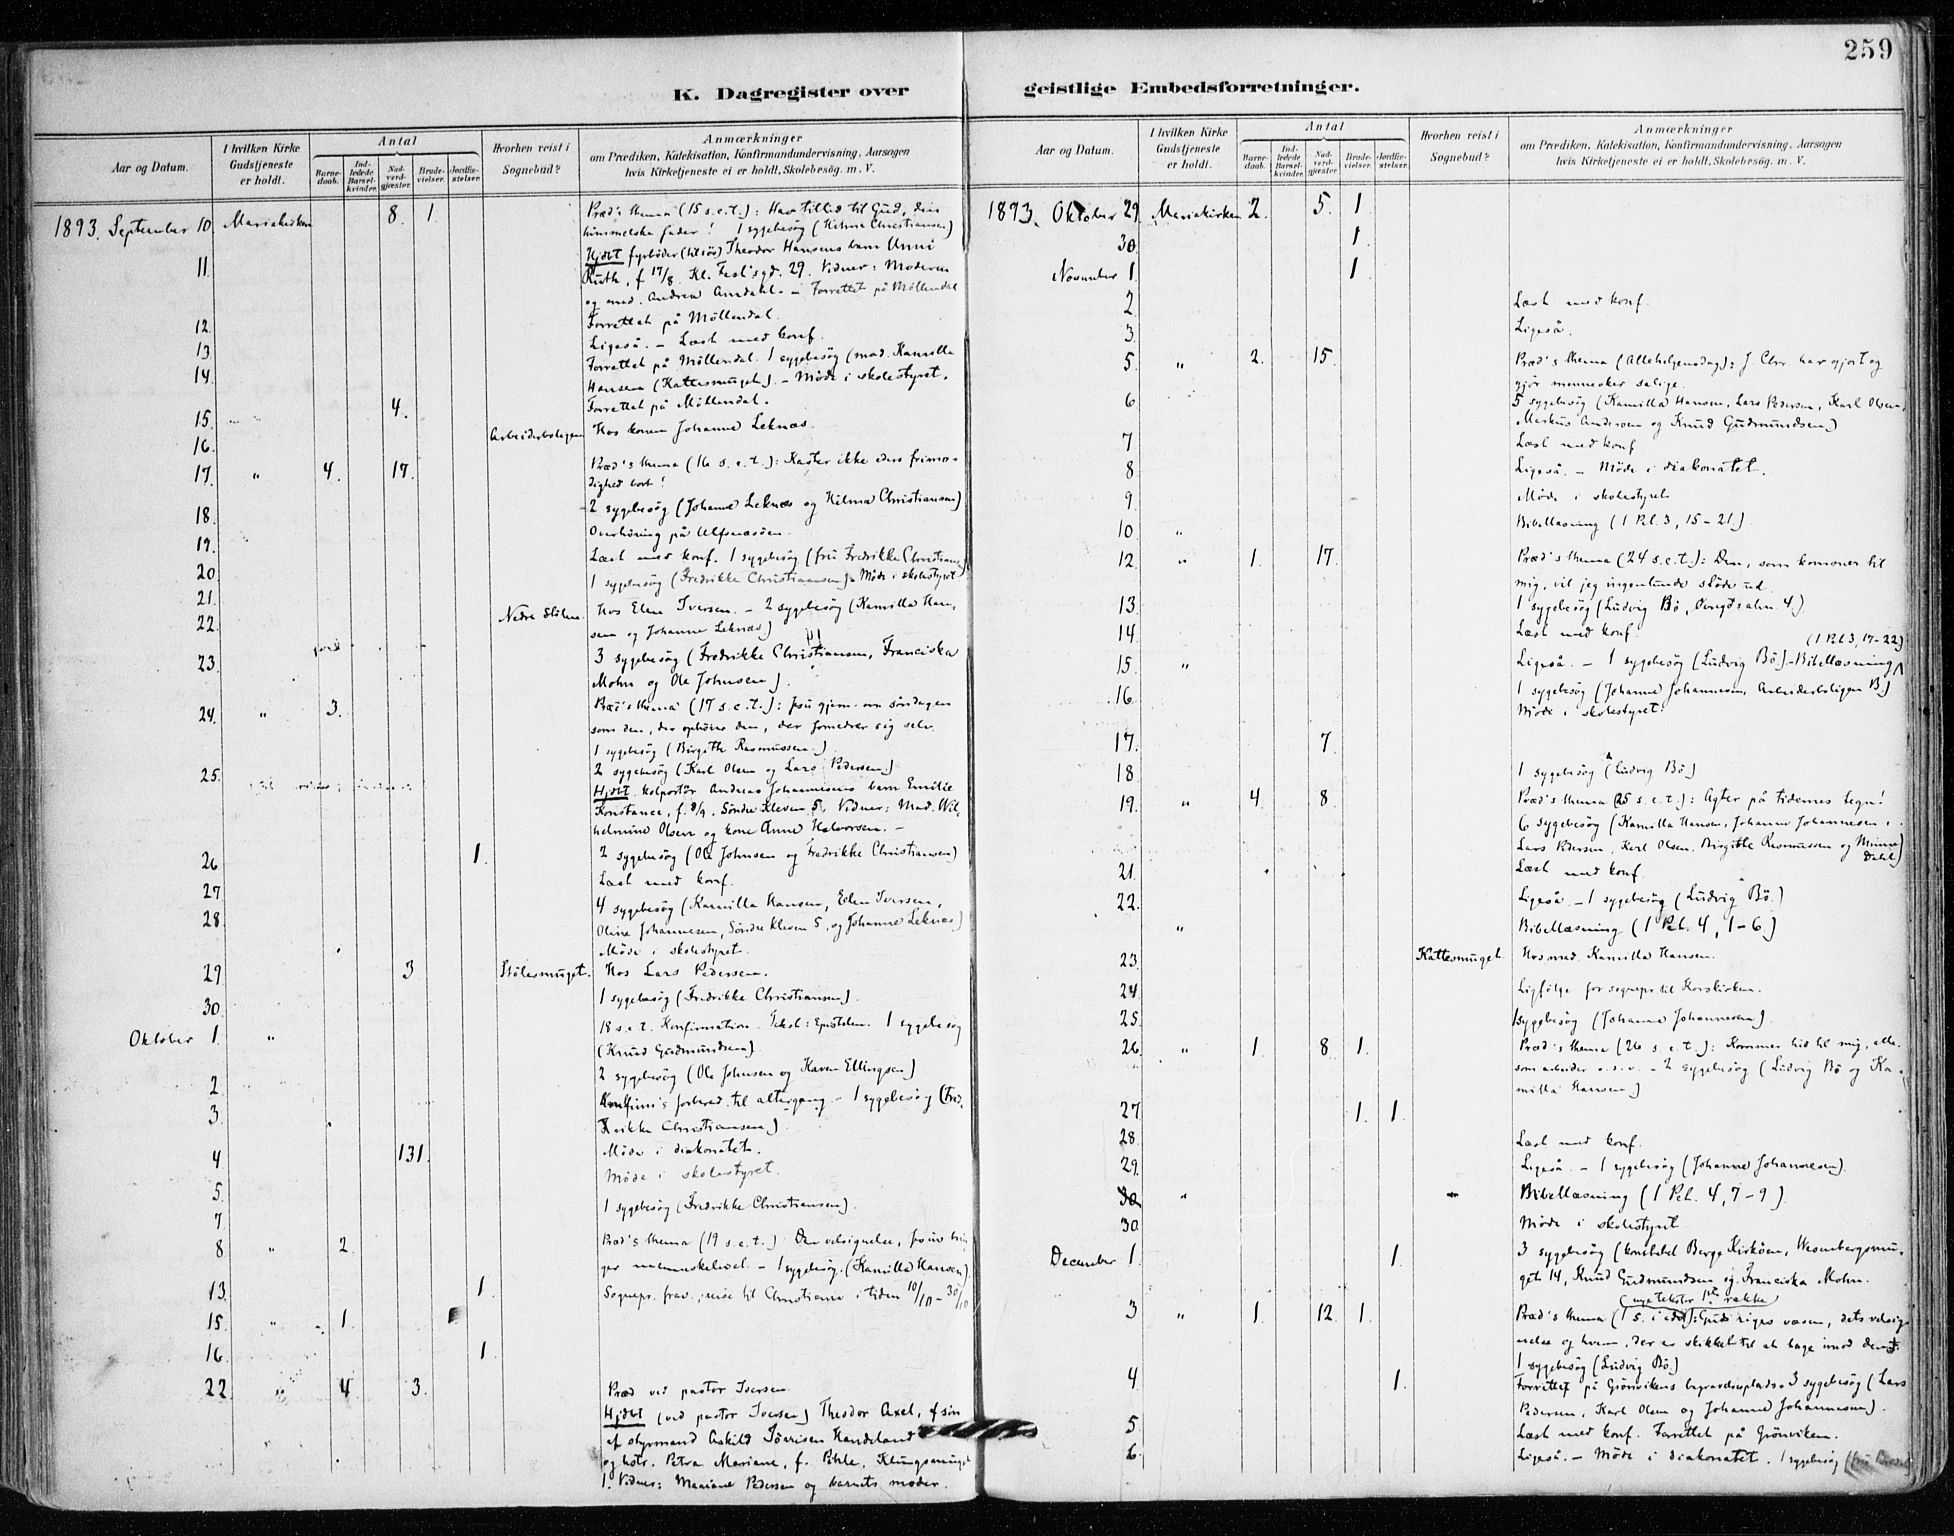 259
K. Dagregister over
geistlige Embedsforretninger.
Aar og Datum.
I hvilken Kirke Gudstjeneste er holdt.
Antal
Barne-daab.
Ind-ledede Barsel-kvinder.
Nad-verd-gjæster.
Brude-vielser.
Jordfæ-stelser.
Hvorhen reist i Sognebud?
Anmærkninger
om Prædiken, Katekisation, Konfirmandundervisning, Aarsagen
hvis Kirketjeneste ei er holdt, Skolebesøg. m. V.
1893. September 10. Mariakirken 8. 1. Præd's thema (15 s.e.t.): Hav tillid til Gud, din
himmelske fader! 1 sygebesög (Hilma Christiansen)
11. Hjdbt fyrböder (tilsös) Theodor Hansens barn Unni
Ruth, f. 17/8. Vidner: Moderen
og mad. Andrea Amdahl. – Forrettet på Möllendal
12. Forrettet på Möllendal.
13. Ligeså. – Læst med konf.
14. Forrettet på Möllendal. 1 sygebesög (mad. Kamilla
Hansen (Kattesmuget). – Möde i skolestyret.
15. 4. Forrettet på Möllendal.
16. Arbeiderboligen Hos konen Johanne Leknæs.
17. " 4. 17. Præd's thema (16 s.e.t.): Kaster ikke eders frimo-
dighed bort!
18. 2 sygebesög (Johanne Leknæs og Hilma Christiansen)
19. Overhöring på Ulfsnæsöen.
20. Læst med konf. 1 sygebesög (fru Fredrikke Christiansen)
21. 1 sygebesög (Fredrikke Christiansen). Möde i skolestyret
22. Nedre Stölen. Hos Elen Iversen. – 2 sygebesög (Kamilla Han-
sen og Johanne Leknæs)
23. 3 sygebesög (Fredrikke Christiansen, Franciska
Mohn og Ole Johnsen).
24. " 3. Præd's thema (17 s.e.t.): søndagen
som den, der ophöier den, der fornedrer sig selv.
1 sygebesög (Birgithe Rasmussen.)
25. 2 sygebesög (Karl Olsen og Lars Pedersen)
Hjdbt kolportör Andreas Johannesens barn Emilie
Konstance, f. 8/9. Söndre Kleven 5. Vidner: Mad. Wil-
helmine Olsen og kone Anne Halvorsen. –
26 1. 2 sygebesög (Ole Johnsen og Fredrikke Christiansen)
27 Læst med konf.
28 4 sygebesög (Kamilla Hansen, Elen Iversen,
Oline Johannesen, Söndre Kleven 5, og Johanne Leknæs)
Möde i skolestyret.
29 3 Stölesmuget. Hos Lars Pedersen.
30. 1 sygebesög (Fredrikke Christiansen).
Oktober 1. " 18 s.e.t. Konfirmation. Tekst: Epistelen. 1 sygebesög
(Knud Gudmundsen).
2 2 sygebesög (Ole Johnsen og Karen Ellingsen)
3. Konfirm's forbered. til altergang – 1 sygebesög (Fred-
rikke Christiansen)
4 131. Möde i diakonatet.
5. Möde i skolestyret.
7. 1 sygebesög (Fredrikke Christiansen).
8 " 2. Præd's thema (19 s.e.t.) Den velsignelse,
– 1 sygebesög. (Kamilla Hansen)
13. 1. Sognepr. frav. reise til Christiania i tiden 10/10 – 30/10
15. " 1.
16. 1.
22 " 4 3. Præd ved pastor Iversen.
Hjdbt (ved pastor Iversen) Theodor Axel, f sön
af styrmand Askild Handeland
og hstr. Petra Mariane, f. Pihle, Klingesmuget
1. Vidner: Mariane Pedersen og barnets moder.
Aar og Datum.
I hvilken Kirke Gudstjeneste er holdt.
Antal
Barne-daab.
Ind-ledede Barsel-kvinder.
Nad-verd-gjæster.
Brude-vielser.
Jordfæ-stelser.
Hvorhen reist i Sognebud?
Anmærkninger
om Prædiken, Katekisation, Konfirmandundervisning, Aarsagen
hvis Kirketjeneste ei er holdt, Skolebesøg. m. V.
1893. Oktober 29. Mariakirken 2. 5. 1
30. 1.
November 1. 1.
2 Læst med konf.
3. Ligeså.
5. " 2. 15. Præd's thema (Allehelgensdag): J. Chr. har gjort og
gjör mennesker salige.
6 5 sygebesög (Kamilla Hansen, Lars Pedersen, Karl Olsen,
Markus Andersen og Knud Gudmundsen)
7 Læst med konf
8 Ligeså. – Möde i diakonatet.
9 Möde i skolestyret
10 " Bibellæsning (1 Pet. 3, 15–21.)
12. " 1. 17. Præd's thema (24 s.e.t.): Den, som kommer til
mig, vil jeg ingenlunde stöde ud.
13. 1 sygebesög (Ludvig Bö, 4.)
14. Læst med konf.
(1 Pet 3, 17–22)
15. " Ligeså. – 1 sygebesög (Ludvig Bö) – Bibellæsning
16. 1 sygebesög (Johanne Johannesen, Arbeiderboligen B)
Möde i skolestyret.
17. 7.
18 1 sygebesög (Ludvig Bö)
19. " 4. 8. Præd's thema (25 s.e.t.): Agter på tidernes tegn!
6 sygebesög (Kamilla Hansen, Johanne Johannesen,
Lars Pedersen, Karl Olsen, Birgitte Rasmussen og Minne
Dahl)
21. Læst med konf.
22. Ligeså. – 1 sygebesög (Ludvig Bö.)
" Bibellæsning (1 Pet. 4, 1–6.)
23. Kattesmuget. Hos mad. Kamilla Hansen.
24 Ligfölge for sognepr. til Korskirken.
25. 1 sygebesög (Johanne Johannesen).
26 " 1. 8. 1. Præd's thema (26 s.e.t.): Kommer hid til mig, alle
som arbeider o.s.v. – 2 sygebesög (Ludvig Bö og Ka-
milla Hansen)
27 1. 1.
28. Læst med konf.
29. Ligeså. – 1 sygebesög (Johanne Johannesen).
30 " Bibellæsning (1 Pet. 4, 7–9).
30. Möde i skolestyret.
December 1. 1. 3 sygebesög (konstabel Berge Kirköen, Wesenbergsmu-
get 14, Knud Gudmundsen og Franciska Mohn.
(nye tekster 1ste række)
3 " 1. 12 1. Præd's thema (1 s. i adv): Guds riges væsen, dets velsig-
nelse og hvem, der er skikket til at tage imod det.
1 sygebesög (Ludvig Bö.)
4 1. Forrettet på Grönvikens begravelsesplads. 3 sygebesög (Lars
Pedersen, Karl Olsen og Johanne Johannesen).
5 Læst med konf. Forrettet på Grönviken.
6. Ligeså. – Möde i diakonatet. 1 sygebesög